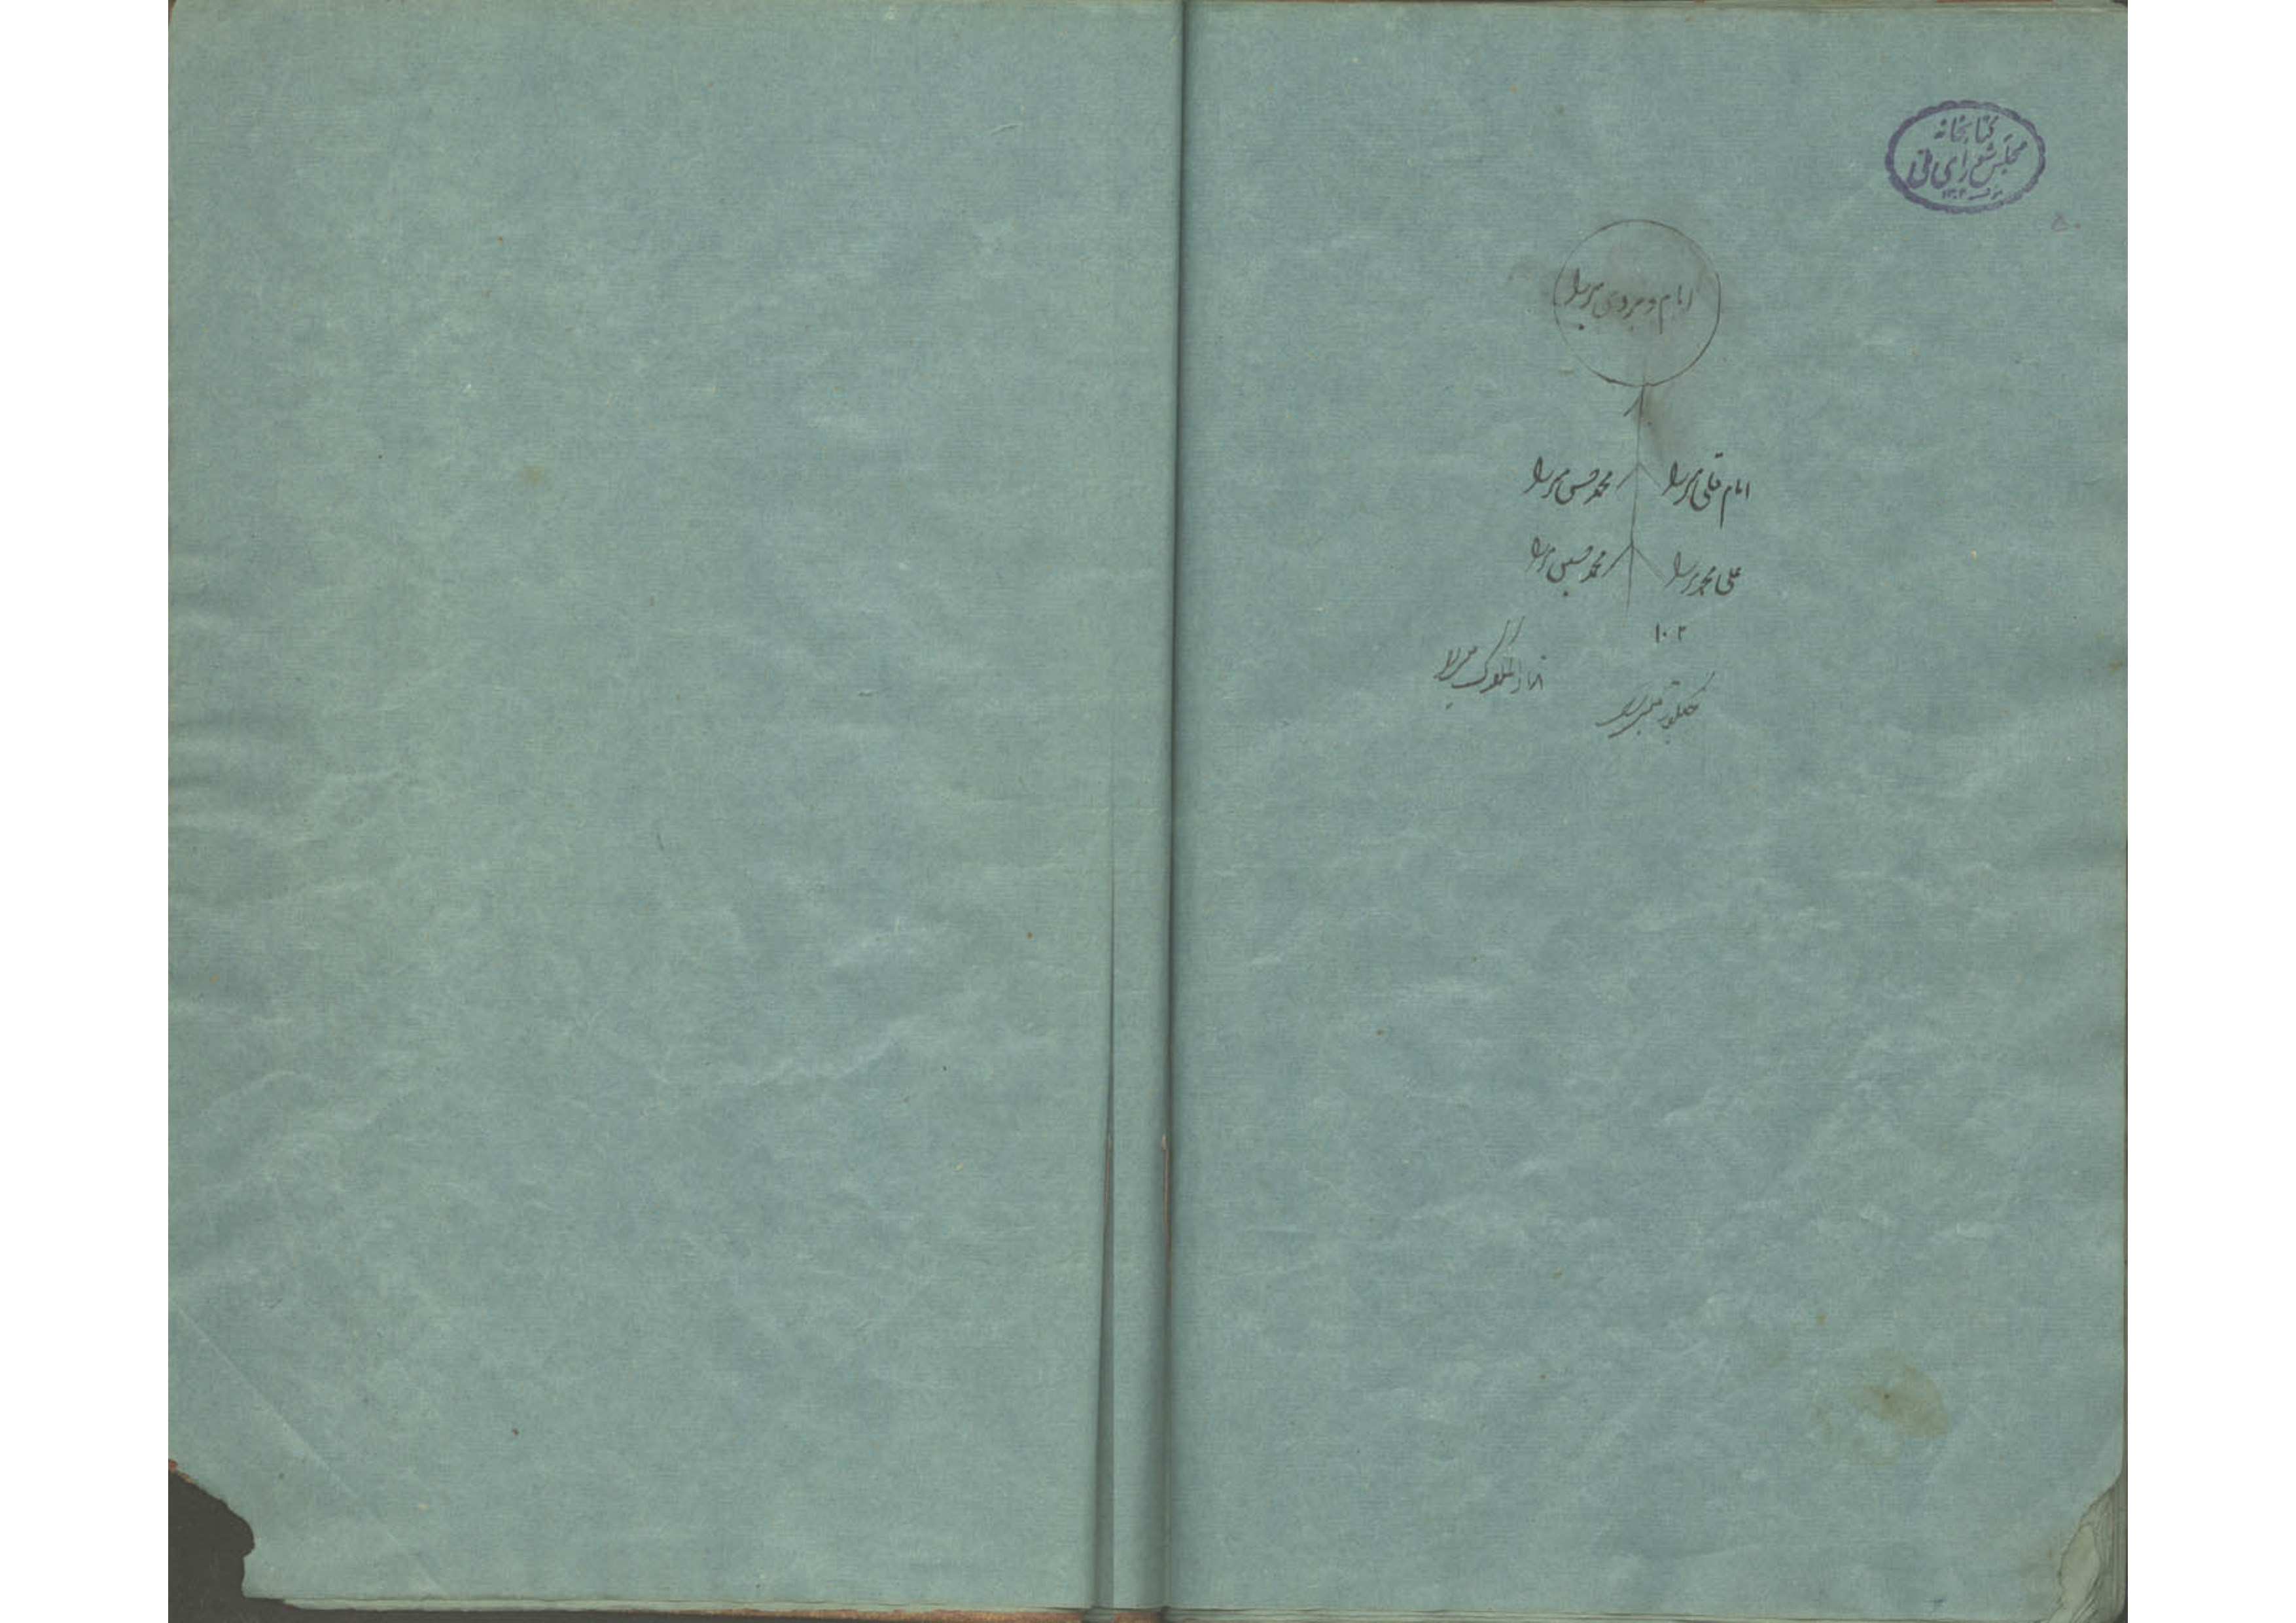 کتابخانه
مجلس شورای ملی
۵۰
امام ویردی میرزا
امام قلی میرزا محمد حسن میرزا
علی محمد میرزا محمد حسین میرزا
۱۰۲
میرزا